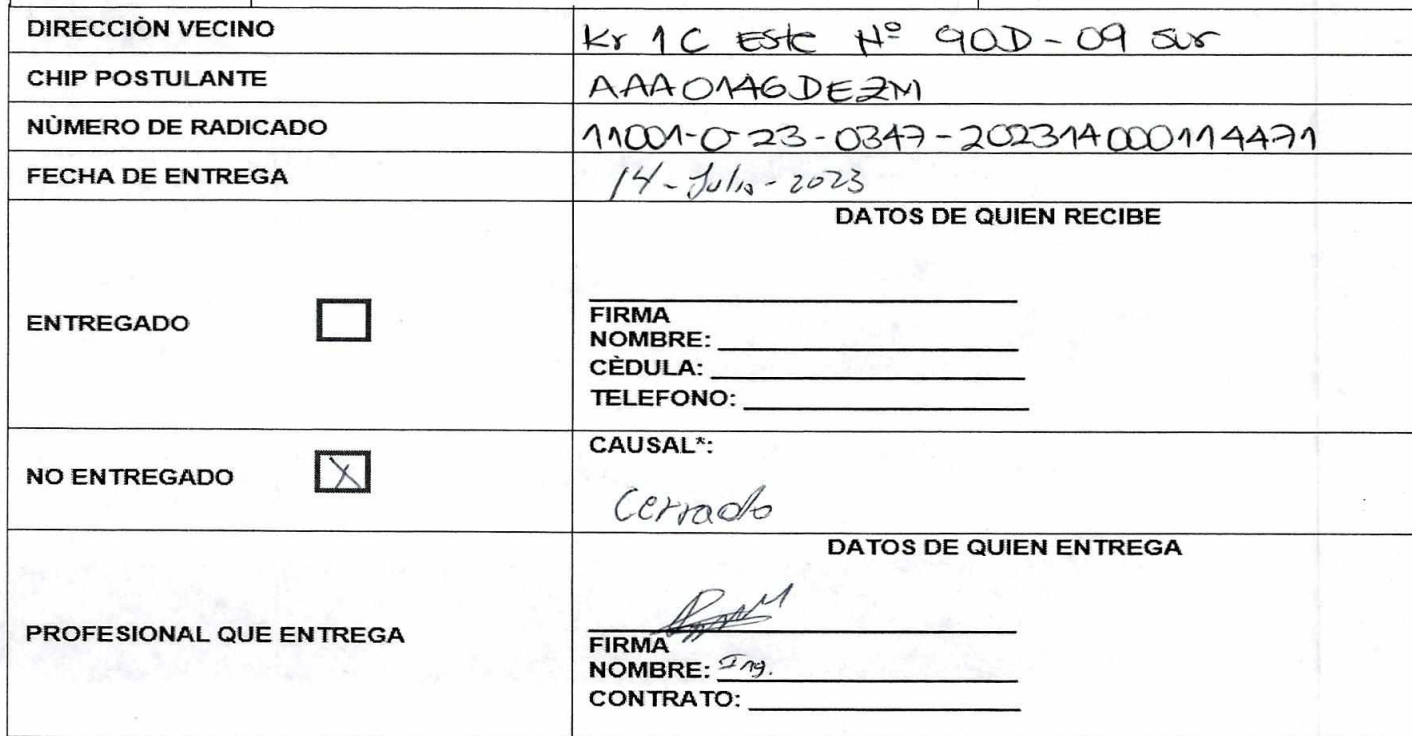 DIRECCIÒN VECINO Kr 1C Este Nº 90D-09 sur
CHIP POSTULANTE AAA0146DEZM
NÙMERO DE RADICADO 11001-0-23-0347-202314000114471
FECHA DE ENTREGA 14-Julio-2023
DATOS DE QUIEN RECIBE
ENTREGADO
FIRMA
NOMBRE:
CÈDULA:
TELEFONO:
NO ENTREGADO X
CAUSAL*:
Cerrado
DATOS DE QUIEN ENTREGA
PROFESIONAL QUE ENTREGA
FIRMA
NOMBRE: Ing.
CONTRATO: